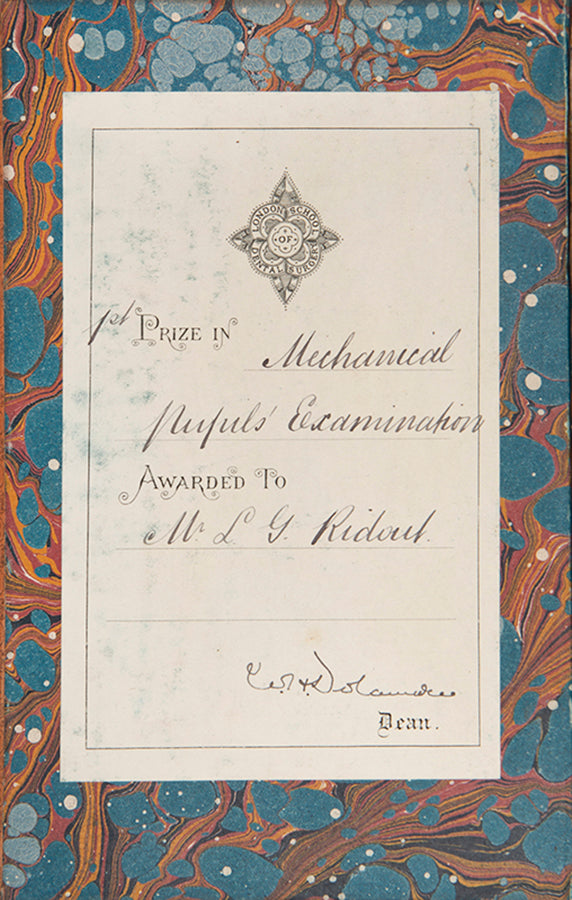 LONDON SCHOOL
OF
DENTAL SURGERY
1st PRIZE IN Mechanical
Pupils' Examination
AWARDED TO
Mr L. G. Ridout.
Dean.